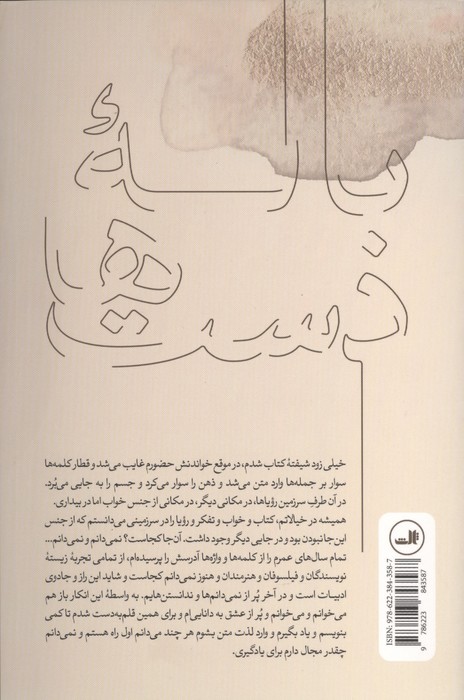 نالهٔ
نیست‌ها
خیلی زود شیفتهٔ کتاب شدم، در موقع خواندنش حضورم غایب می‌شد و قطار کلمه‌ها
سوار بر جمله‌ها وارد متن می‌شد و ذهن را سوار می‌کرد و جسم را به جایی می‌بُرد.
در آن طرفِ سرزمین رؤیاها، در مکانی دیگر، در مکانی از جنس خواب اما در بیداری.
همیشه در خیالاتم، کتاب و خواب و تفکر و رؤیا را در سرزمینی می‌دانستم که از جنس
این‌جا نبودن بود و در جایی دیگر وجود داشت. آن‌جا کجاست؟ نمی‌دانم و نمی‌دانم...
تمام سال‌های عمرم را از کلمه‌ها و واژه‌ها آدرسش را پرسیده‌ام، از تمامی تجربهٔ زیستهٔ
نویسندگان و فیلسوفان و هنرمندان و هنوز نمی‌دانم کجاست و شاید این راز و جادوی
ادبیات است و در آخر پُر از نمی‌دانم‌ها و ندانستن‌هایم. به واسطهٔ این انکار باز هم
می‌خوانم و می‌خوانم و پُر از عشق به دانایی‌ام و برای همین قلم‌به‌دست شدم تا کمی
بنویسم و یاد بگیرم و وارد لذت متن بشوم هر چند می‌دانم اول راه هستم و نمی‌دانم
چقدر مجال دارم برای یادگیری.
ISBN: 978-622-384-358-7
9 786223 843587